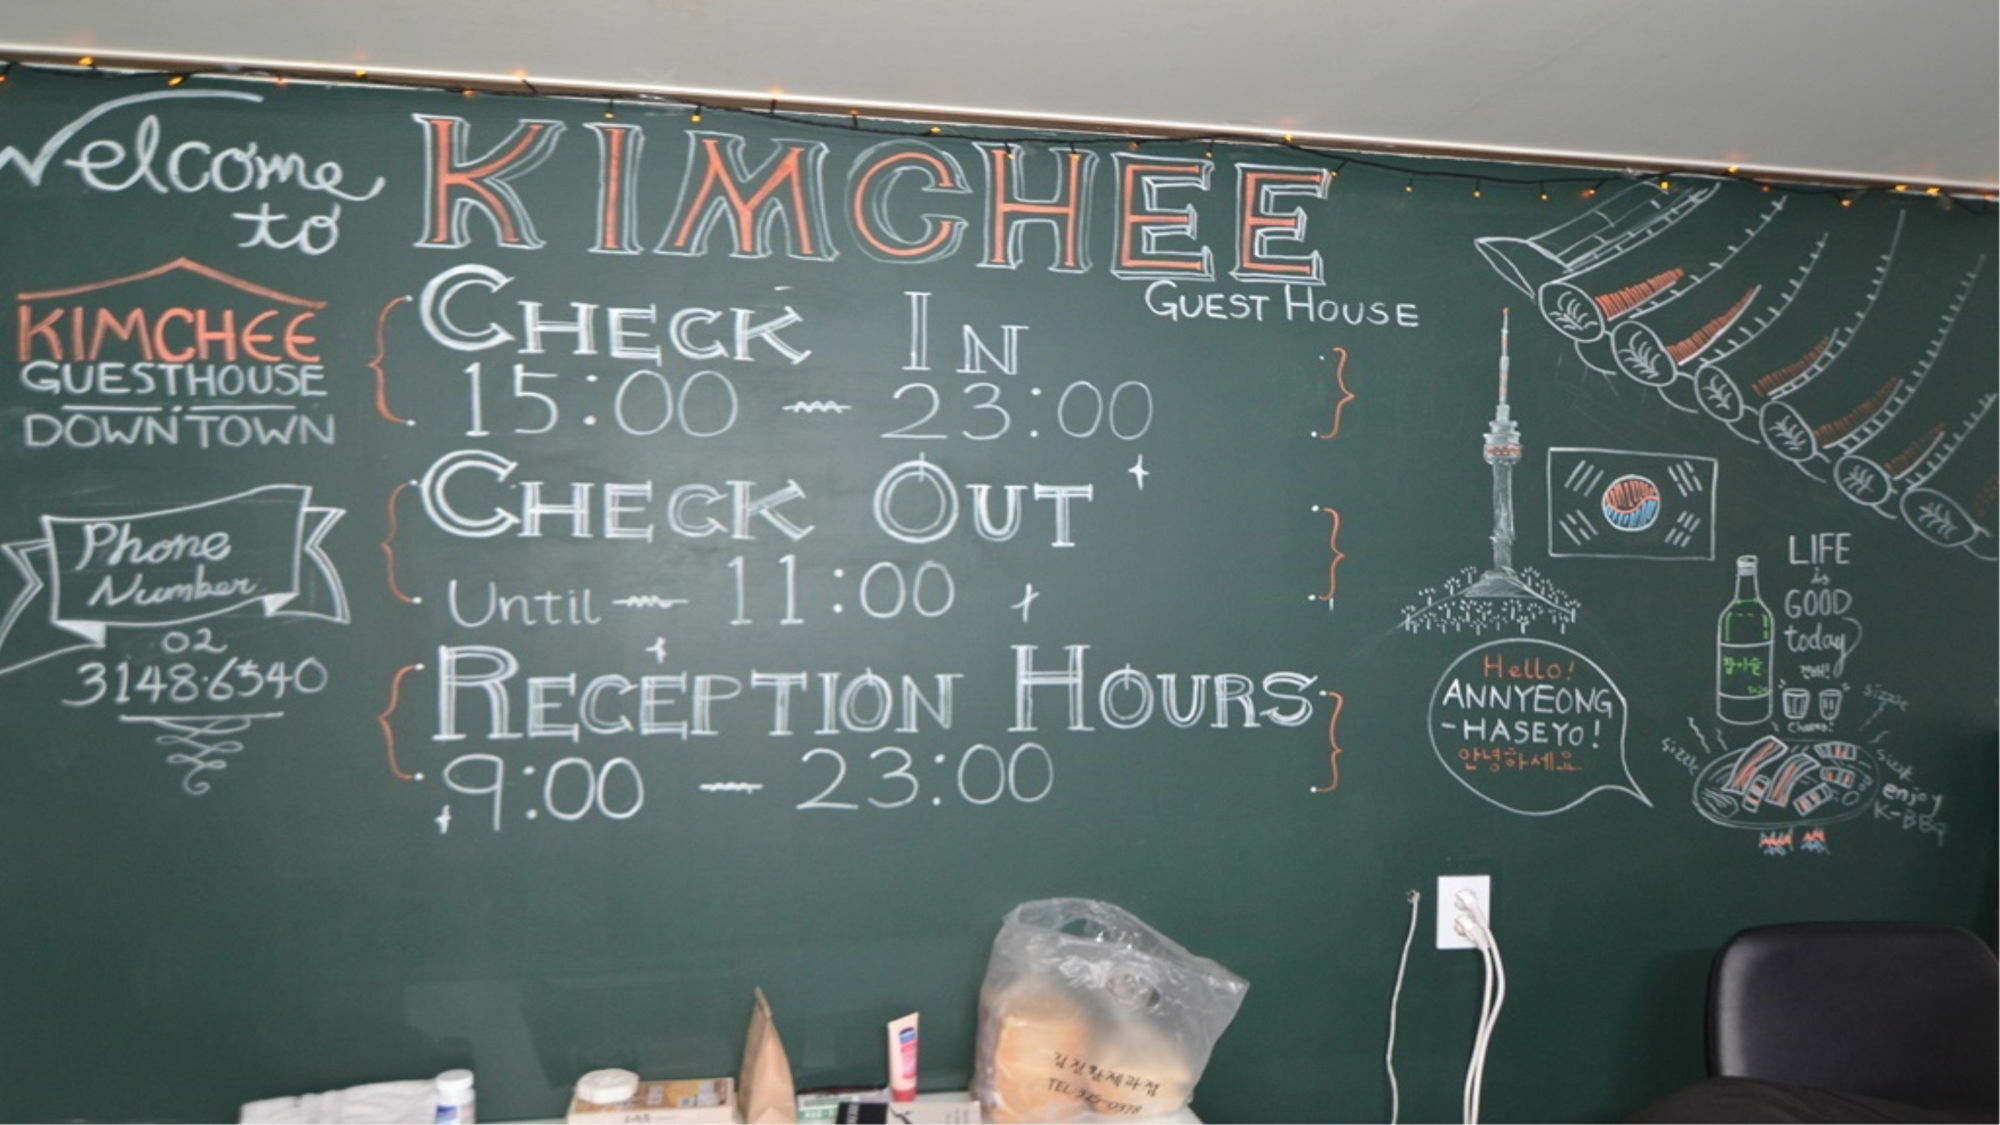 Welcome
to
KIMCHEE
GUEST HOUSE
KIMCHEE
GUESTHOUSE
DOWNTOWN
Phone
Number
02
3148·6540
CHECK IN
15:00 — 23:00
CHECK OUT
Until — 11:00
RECEPTION HOURS
9:00 — 23:00
LIFE
is
GOOD
today
건배!
Cheers!
참이슬
Hello!
ANNYEONG
-HASEYO!
안녕하세요
sizzle
sizzle
sizzle
enjoy
K-BBQ
김진환제과점
TEL·325-0378